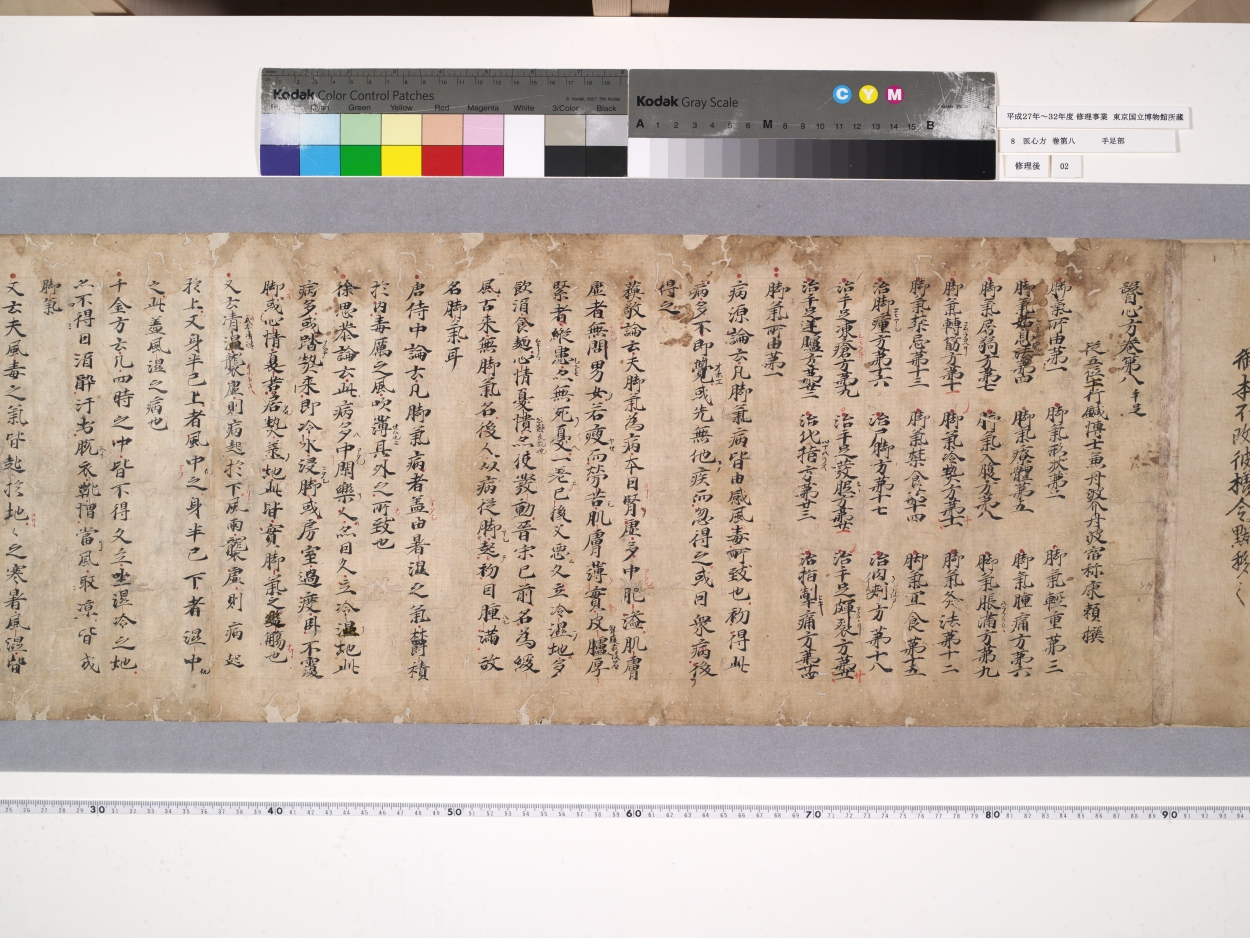 Kodak Color Control Patches
Cyan Green Yellow Red Magenta White 3/Color Black
Kodak Gray Scale
C Y M
A 1 2 3 4 5 6 M 8 9 10 11 12 13 14 15 B
平成27年~32年度 修理事業 東京国立博物館所蔵
8 医心方 巻第八 手足部
修理後 02
本不改彼様令點移
醫心方卷第八 手足
從五位下行鍼博士兼丹波介丹波宿祢康頼撰
脚氣所由第一 脚氣形状第二 脚氣輕重第三
脚氣姑息法第四 脚氣療體第五 脚氣腫痛方第六
脚氣屈弱方第七 脚氣入腹方第八 脚氣脹滿方第九
脚氣轉筋方第十 脚氣冷熱方第十一 脚氣灸法第十二
脚氣禁忌第十三 脚氣禁食第十四 脚氣宜食第十五
治脚癉方第十六 治尸脚方第十七 治肉刾方第十八
治手足凍瘡方第十九 治手足發胝方第廿 治手足皹裂方第廿一
治手足逆臚方第廿二 治代指方第廿三 治指掣痛方第廿四
脚氣所由第一
病源論云凡脚氣病皆由感風毒所致也初得此
病多不即覺或先無他疾而忽得之或曰衆病後
得之
蘇敬論云夫脚氣為病本曰腎虚多中肥溢肌膚
虚者無問男女若瘦而勞苦肌膚薄實皮膚厚
緊者縱患亦無死憂一患已後又惡久立冷濕地多
飲酒食麪心情憂憒亦使發動晉宋已前名為緩
風古来無脚氣名後人以病從脚起初曰腫滿故
名脚氣耳
唐侍中論云凡脚氣病者盖由暑濕之氣欝積
於内毒厲之風吹薄其外之所致也
徐思恭論云此病多中閑樂人亦曰久立冷濕地此
病多或踏熱来即冷水浸脚或房室過度再不
脚或心情憂若居熱蒸地此皆實脚氣之觴也
又云清濕襲虚則病起於下風雨襲虚則病起
於上又身半已上者風中之身半已下者濕中
之此盖風濕之病也
千金方云凡四時之中皆不得久立坐濕冷之地
亦不得曰酒酔汗出脱衣靴當風取凉皆成
脚氣
又云夫風毒之氣皆起於地々之寒暑風濕皆
30 40 50 60 70 80 90